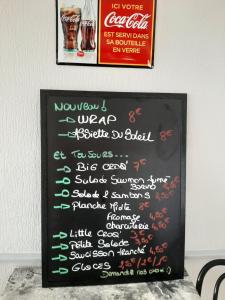 ICI VOTRE
Coca-Cola
EST SERVI DANS
SA BOUTEILLE
EN VERRE
NOUVEAU!
WRAP 8€
Assiette Du Soleil 8€
Et Toujours...
BIG CROQ' 7€
Salade Saumon fumé
Salade 2 Jambons
Planche Mixte
Fromage
Charcuterie
Little Croq'
Petite Salade
Saucisson tranché
GLACES
Demandez nos choix :)